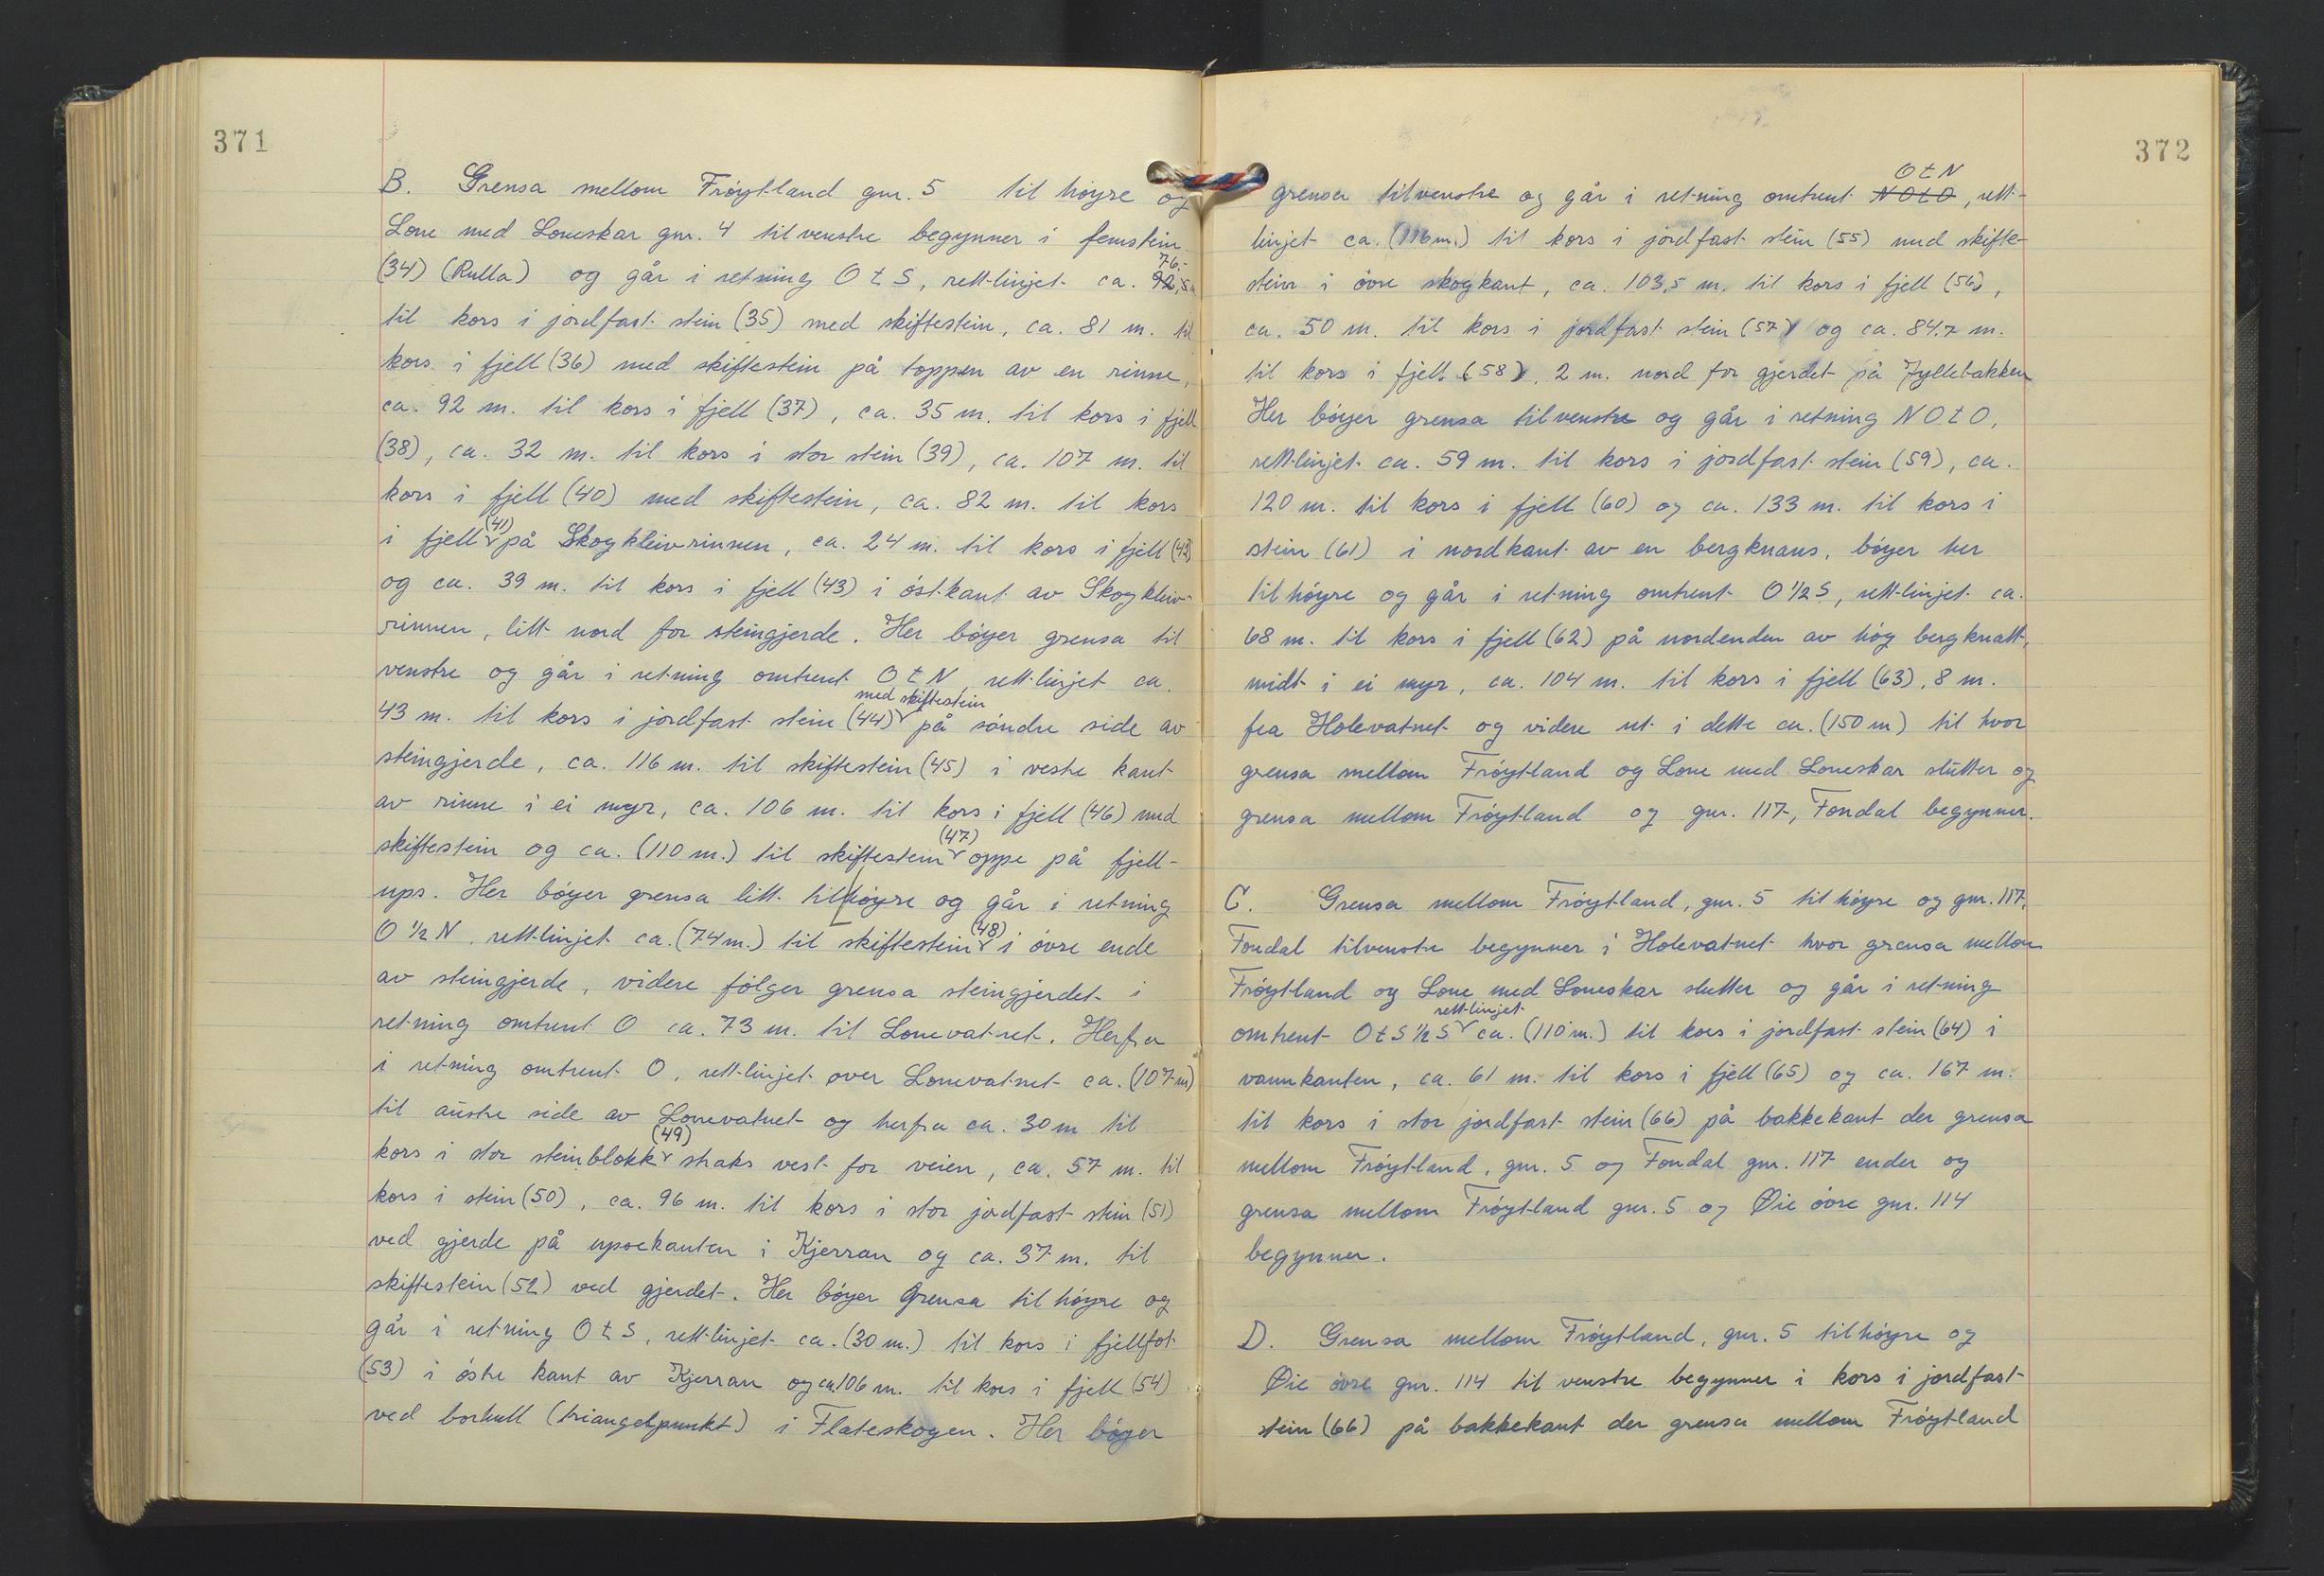 371
B. Grensa mellom Frøytland gnr. 5 til høyre og
Lone med Loneskar gnr. 4 til venstre begynner i femstein
(34) (Rulla) og går i retning O t S, rett-linjet ca. 76.-
til kors i jordfast stein (35) med skiftestein, ca. 81 m. til
kors i fjell (36) med skiftestein på toppen av en rinne,
ca. 92 m. til kors i fjell (37), ca. 35 m. til kors i fjell
(38), ca. 32 m. til kors i stor stein (39), ca. 107 m. til
kors i fjell (40) med skiftestein, ca. 82 m. til kors
i fjell (41) på Skogkleivrinnen, ca. 24 m. til kors i fjell (42)
og ca. 39 m. til kors i fjell (43) i östkant av Skogkleiv-
rinnen, litt nord for steingjerde. Her böyer grensa til
venstre og går i retning omtrent O t N, rett-linjet ca.
43 m. til kors i jordfast stein (44) med skiftestein på söndre side av
steingjerde, ca. 116 m. til skiftestein (45) i vestre kant
av rinne i ei myr, ca. 106 m. til kors i fjell (46) med
skiftestein og ca. (110 m.) til skiftestein (47) oppe på fjell-
ups. Her böyer grensa litt til höyre og går i retning
O 1/2 N, rett-linjet ca. (74 m.) til skiftestein (48) i övre ende
av steingjerde, videre fölger grensa steingjerdet i
retning omtrent O ca. 73 m. til Lonevatnet. Herfra
i retning omtrent O, rett-linjet over Lonevatnet ca. (107 m)
til austre side av Lonevatnet og herfra ca. 30 m til
kors i stor steinblokk (49) straks vest for veien, ca. 57 m. til
kors i stein (50), ca. 96 m. til kors i stor jordfast stein (51)
ved gjerde på upsekanten i Kjerran og ca. 37 m. til
skiftestein (52) ved gjerdet. Her böyer Grensa til höyre og
går i retning O t S, rett-linjet ca. (30 m.) til kors i fjellfot
(53) i östre kant av Kjerran og ca. 106 m. til kors i fjell (54)
ved borhull (triangelpunkt) i Flateskogen. Her böyer
372
grensa tilvenstre og går i retning omtrent N O t O O t N, rett-
linjet ca. (116 m.) til kors i jordfast stein (55) med skifte-
stein i övre skogkant, ca. 103,5 m. til kors i fjell (56),
ca. 50 m. til kors i jordfast stein (57) og ca. 84.7 m.
til kors i fjell (58), 2 m. nord for gjerdet på Fyllebakken
Her böyer grensa tilvenstre og går i retning N O t O,
rett-linjet ca. 59 m. til kors i jordfast stein (59), ca.
120 m. til kors i fjell (60) og ca. 133 m. til kors i
stein (61) i nordkant av en bergknaus, böyer her
til höyre og går i retning omtrent O 1/2 S, rett-linjet ca.
68 m. til kors i fjell (62) på nordenden av hög bergknatt,
midt i ei myr, ca. 104 m. til kors i fjell (63), 8 m.
fra Holevatnet og videre ut i dette ca. (150 m) til hvor
grensa mellom Fröytland og Lone med Loneskar slutter og
grensa mellom Fröytland og gnr. 117, Fondal begynner.
C. Grensa mellom Fröytland, gnr. 5 til höyre og gnr. 117,
Fondal tilvenstre begynner i Holevatnet hvor grensa mellom
Fröytland og Lone med Loneskar slutter og går i retning
omtrent O t S 1/2 S rett-linjet ca. (110 m.) til kors i jordfast stein (64) i
vannkanten, ca. 61 m. til kors i fjell (65) og ca. 167 m.
til kors i stor jordfast stein (66) på bakkekant der grensa
mellom Fröytland, gnr. 5 og Fondal gnr. 117 ender og
grensa mellom Fröytland gnr. 5 og Øie övre gnr. 114
begynner.
D. Grensa mellom Fröytland, gnr. 5 tilhöyre og
Øie övre gnr. 114 til venstre begynner i kors i jordfast
stein (66) på bakkekant der grensa mellom Fröytland